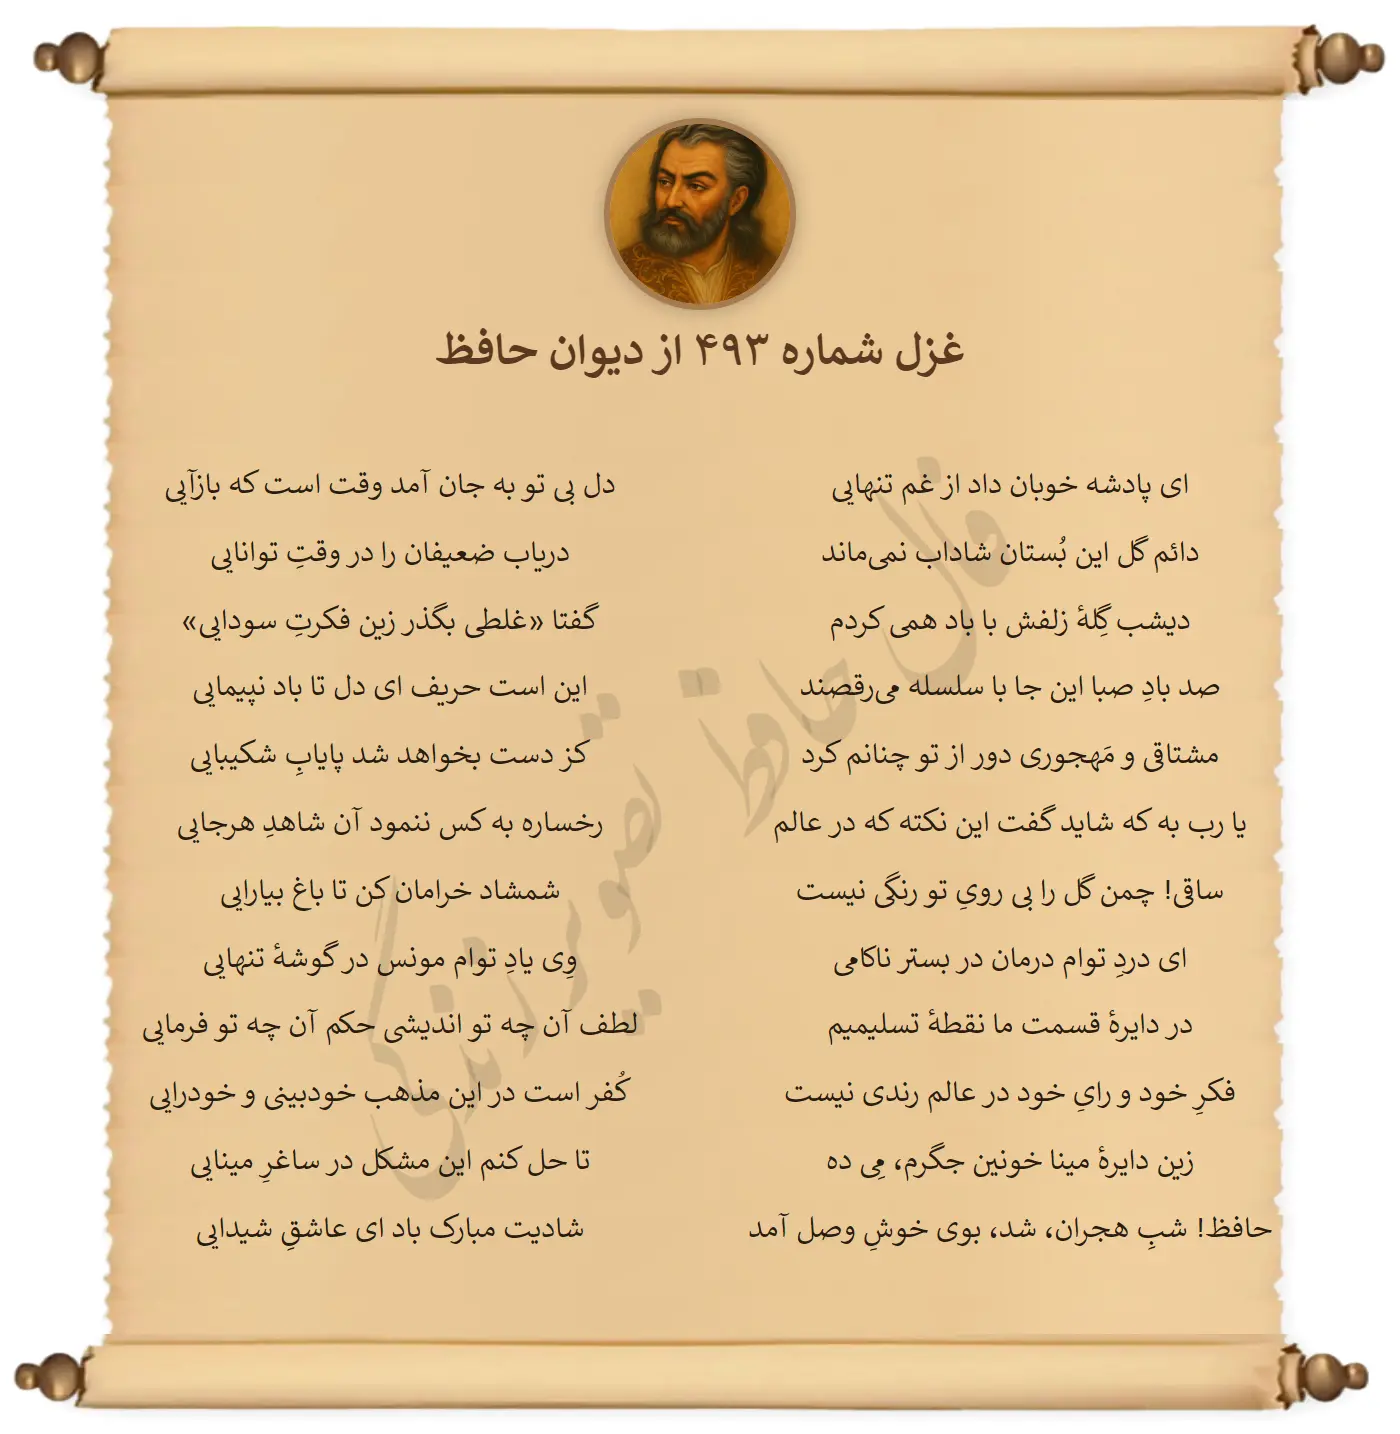 غزل شماره ۴۹۳ از دیوان حافظ
ای پادشه خوبان داد از غم تنهایی
دل بی تو به جان آمد وقت است که بازآیی
دائم گل این بُستان شاداب نمی‌ماند
دریاب ضعیفان را در وقتِ توانایی
دیشب گِلهٔ زلفش با باد همی کردم
گفتا «غلطی بگذر زین فکرتِ سودایی»
صد بادِ صبا این جا با سلسله می‌رقصند
این است حریف ای دل تا باد نپیمایی
مشتاقی و مَهجوری دور از تو چنانم کرد
کز دست بخواهد شد پایابِ شکیبایی
یا رب به که شاید گفت این نکته که در عالم
رخساره به کس ننمود آن شاهدِ هرجایی
ساقی! چمن گل را بی رویِ تو رنگی نیست
شمشاد خرامان کن تا باغ بیارایی
ای دردِ توام درمان در بستر ناکامی
وِی یادِ توام مونس در گوشهٔ تنهایی
در دایرهٔ قسمت ما نقطهٔ تسلیمیم
لطف آن چه تو اندیشی حکم آن چه تو فرمایی
فکرِ خود و رایِ خود در عالم رندی نیست
کُفر است در این مذهب خودبینی و خودرایی
زین دایرهٔ مینا خونین جگرم، مِی ده
تا حل کنم این مشکل در ساغرِ مینایی
حافظ! شبِ هجران، شد، بوی خوشِ وصل آمد
شادیت مبارک باد ای عاشقِ شیدایی
فال حافظ تصویر زندگی